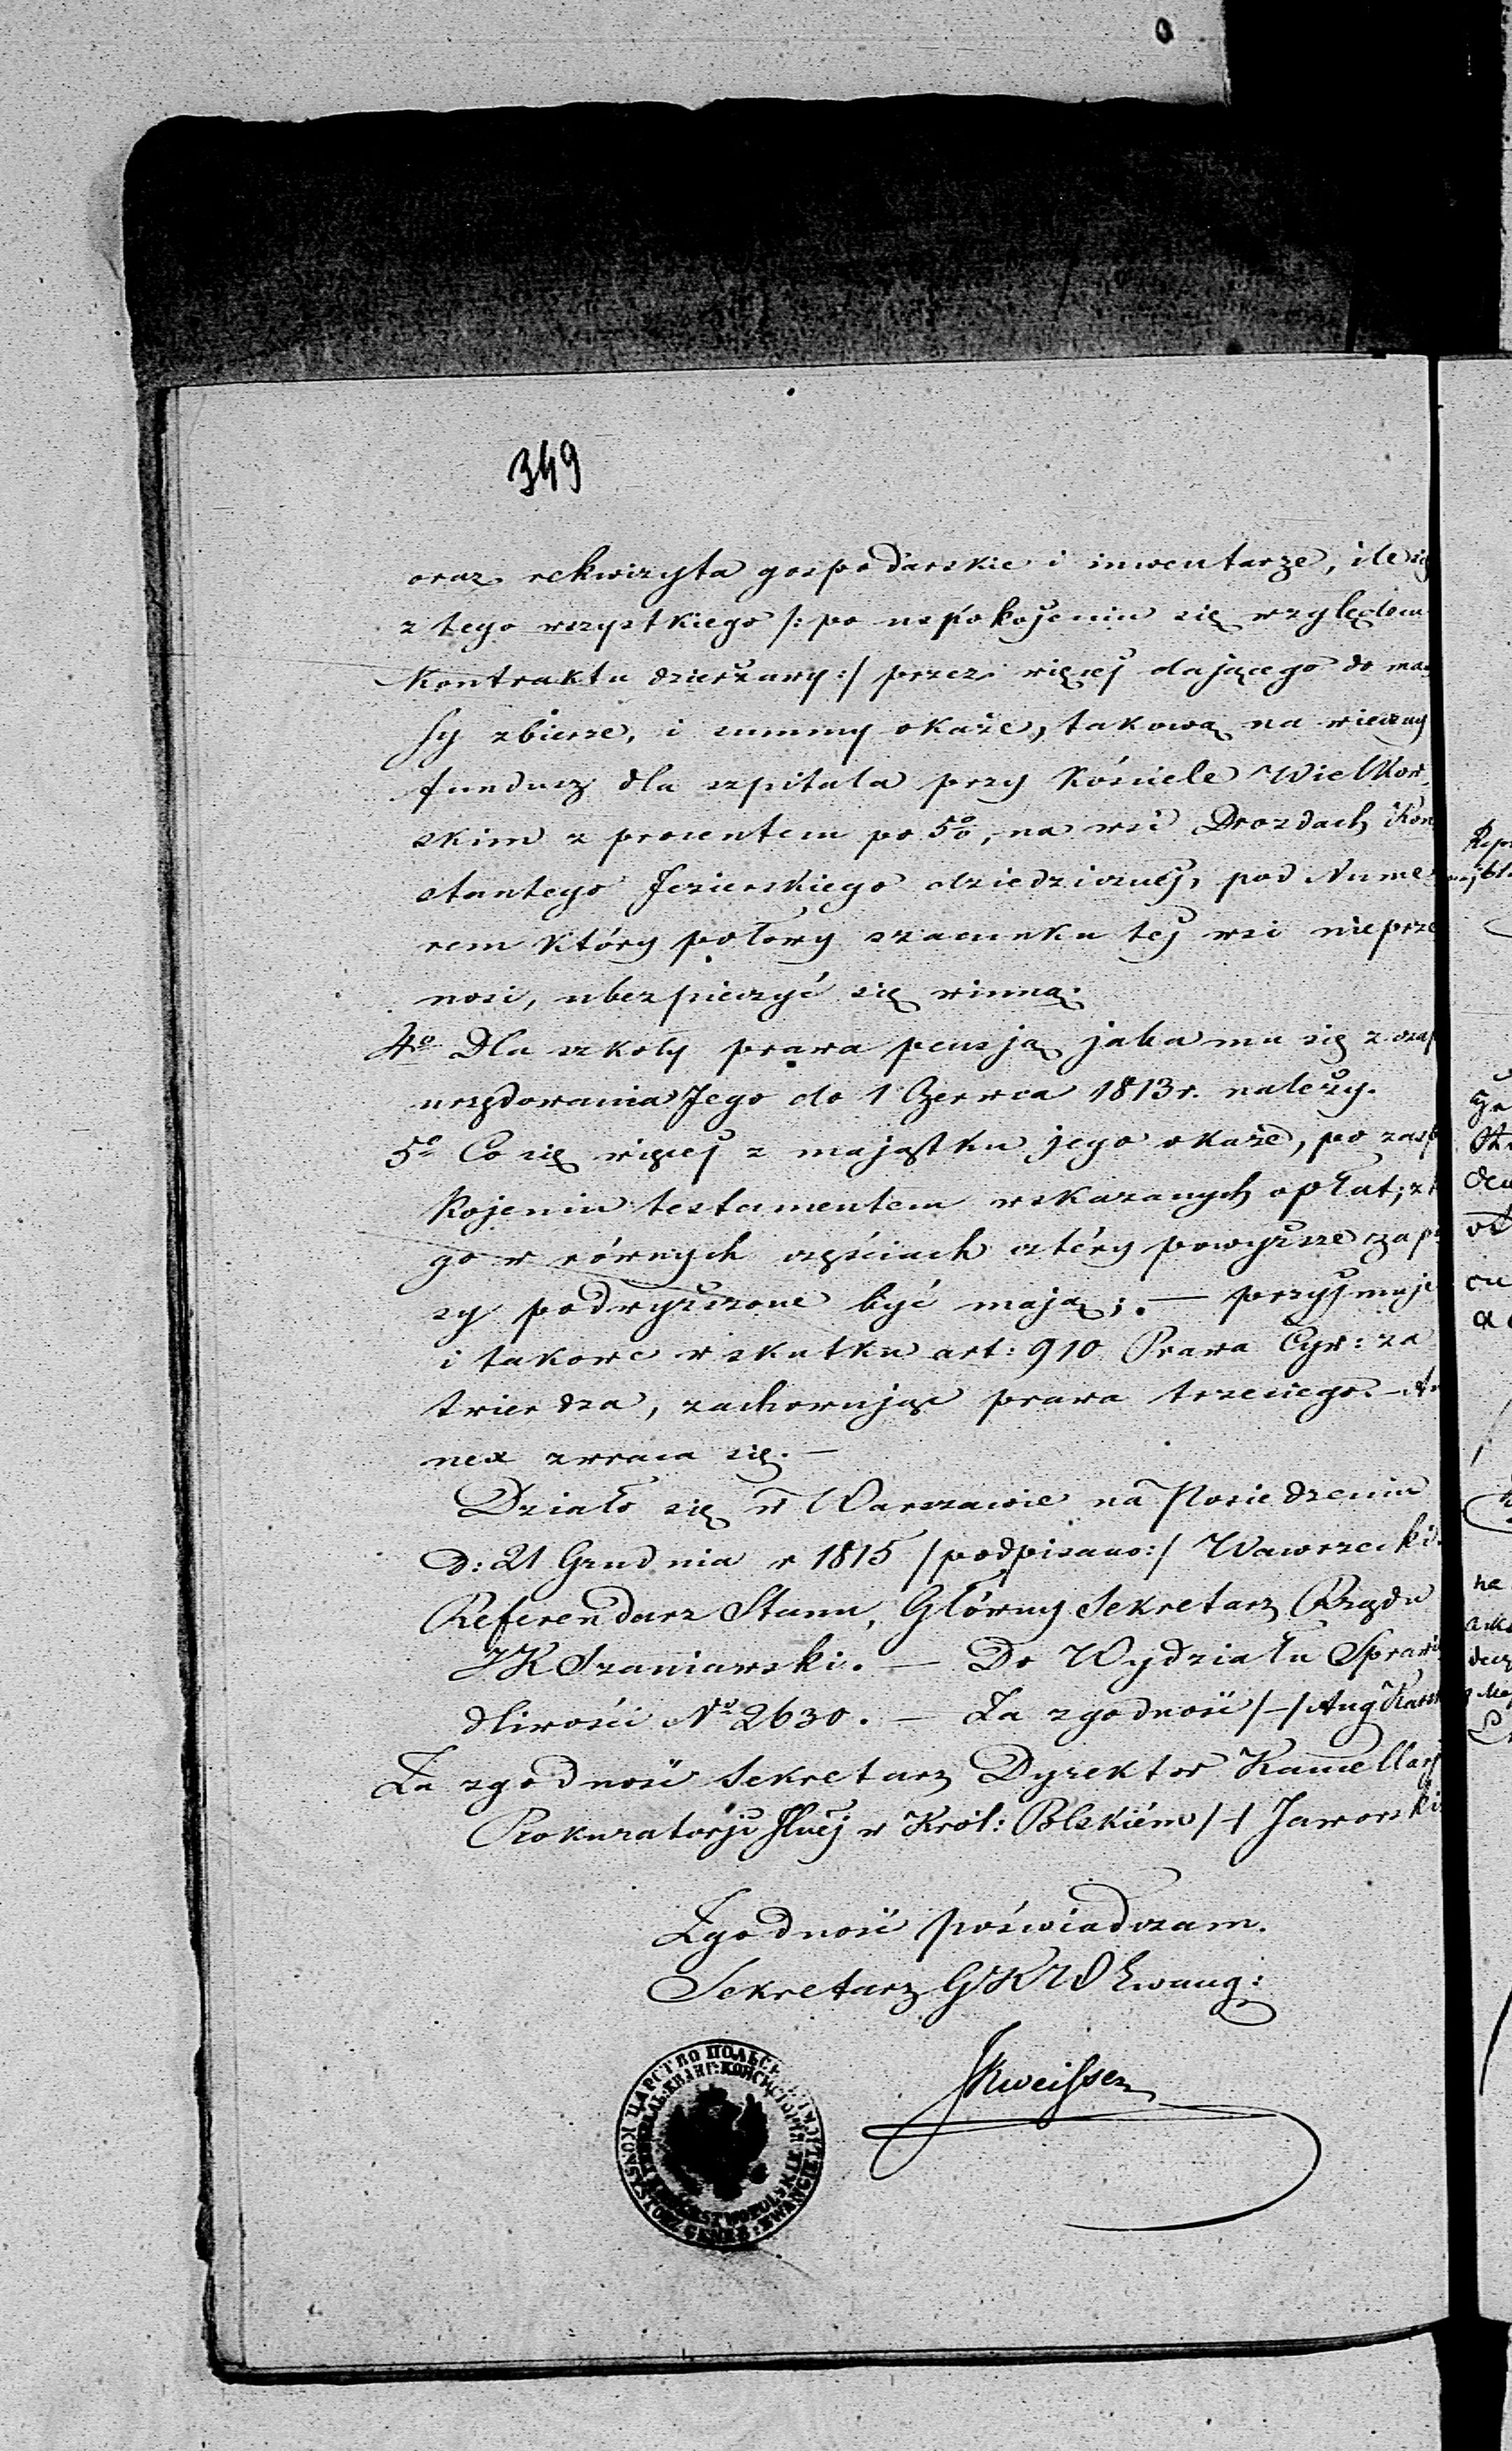 349
oraz rekwizyta gospodarskie i inwentarze, ile się
z tego wszystkiego /: po uspokojeniu się względem
Kontraktu dzierżawy :/ przez więcej dającego do mas
sy zbierze, i summy okaże, takową na wieczny
fundusz dla szpitala przy Kościele Wielkow
skim z procentem po 5%, na wsi Drozdach Kon
stantego Jezierskiego dziedzicznej, pod Nume
rem który połowy szacunku tej wsi nieprze
nosi, ubezpieczyć się winna.
4o Dla szkoły prawa pensją jaka mu się z
urzędowania Jego do 1 Czerwca 1813 r. należy.
5o Co się więcej z majątku jego okaże, po zaspo
kojeniu testamentem wskazanych opłat, z
go w równych częściach cztéry powyższe zapi
sy podwyższone być mają; — przyjmuje
i takowe w skutku art: 910 Prawa Cyw: za
twierdza, zachowując prawa trzeciego. — An
nex zwraca się. —
Działo się w Warszawie na Posiedzeniu
d: 21 Grudnia r 1815 /podpisano:/ Wawrzecki
Referendarz Stanu, Główny Sekretarz Rządu
JK Szaniawski. — Do Wydziału Sprawie
dliwości No 2630. — Za zgodność /–/ Aug
Za zgodność Sekretarz Dyrektor Kancellarj
Prokuratorji w Król: Polskiém /–/ Jaworski
Zgodność poświadczam.
Sekretarz GKW Ewang:
ЦАРСТВО ПОЛЬСК
KONSYSTORZ GENER: EWANGIELICKI